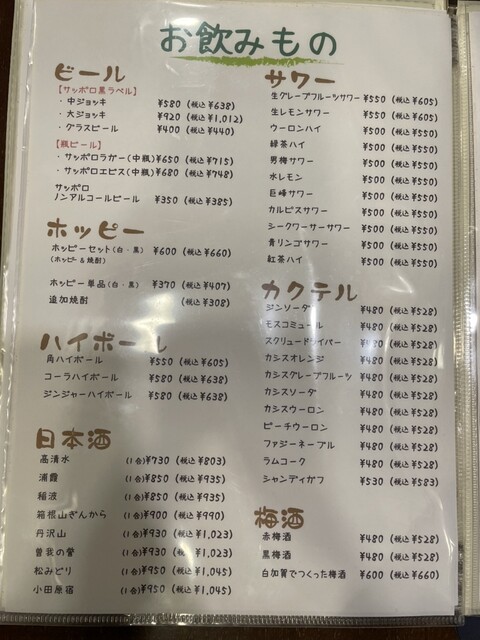 お飲みもの
ビール
【サッポロ黒ラベル】
・中ジョッキ ¥580 (税込 ¥638)
・大ジョッキ ¥920 (税込 ¥1,012)
・グラスビール ¥400 (税込 ¥440)
【瓶ビール】
・サッポロラガー(中瓶) ¥650 (税込 ¥715)
・サッポロエビス(中瓶) ¥680 (税込 ¥748)
サッポロ
ノンアルコールビール ¥350 (税込 ¥385)
ホッピー
ホッピーセット(白・黒) ¥600 (税込 ¥660)
(ホッピー&焼酎)
ホッピー単品(白・黒) ¥370 (税込 ¥407)
追加焼酎 (税込 ¥308)
ハイボール
角ハイボール ¥550 (税込 ¥605)
コーラハイボール ¥580 (税込 ¥638)
ジンジャーハイボール ¥580 (税込 ¥638)
日本酒
高清水 (1合)¥730 (税込 ¥803)
浦霞 (1合)¥850 (税込 ¥935)
稲波 (1合)¥850 (税込 ¥935)
箱根山ぎんから (1合)¥900 (税込 ¥990)
丹沢山 (1合)¥930 (税込 ¥1,023)
曽我の誉 (1合)¥930 (税込 ¥1,023)
松みどり (1合)¥950 (税込 ¥1,045)
小田原宿 (1合)¥950 (税込 ¥1,045)
サワー
生グレープフルーツサワー ¥550 (税込 ¥605)
生レモンサワー ¥550 (税込 ¥605)
ウーロンハイ ¥500 (税込 ¥550)
緑茶ハイ ¥500 (税込 ¥550)
男梅サワー ¥500 (税込 ¥550)
水レモン ¥500 (税込 ¥550)
巨峰サワー ¥500 (税込 ¥550)
カルピスサワー ¥500 (税込 ¥550)
シークワーサーサワー ¥500 (税込 ¥550)
青リンゴサワー ¥500 (税込 ¥550)
紅茶ハイ ¥500 (税込 ¥550)
カクテル
ジンソーダ ¥480 (税込 ¥528)
モスコミュール ¥480 (税込 ¥528)
スクリュードライバー ¥480 (税込 ¥528)
カシスオレンジ ¥480 (税込 ¥528)
カシスグレープフルーツ ¥480 (税込 ¥528)
カシスソーダ ¥480 (税込 ¥528)
カシスウーロン ¥480 (税込 ¥528)
ピーチウーロン ¥480 (税込 ¥528)
ファジーネーブル ¥480 (税込 ¥528)
ラムコーク ¥480 (税込 ¥528)
シャンディガフ ¥530 (税込 ¥583)
梅酒
赤梅酒 ¥480 (税込 ¥528)
黒梅酒 ¥480 (税込 ¥528)
白加賀でつくった梅酒 ¥600 (税込 ¥660)